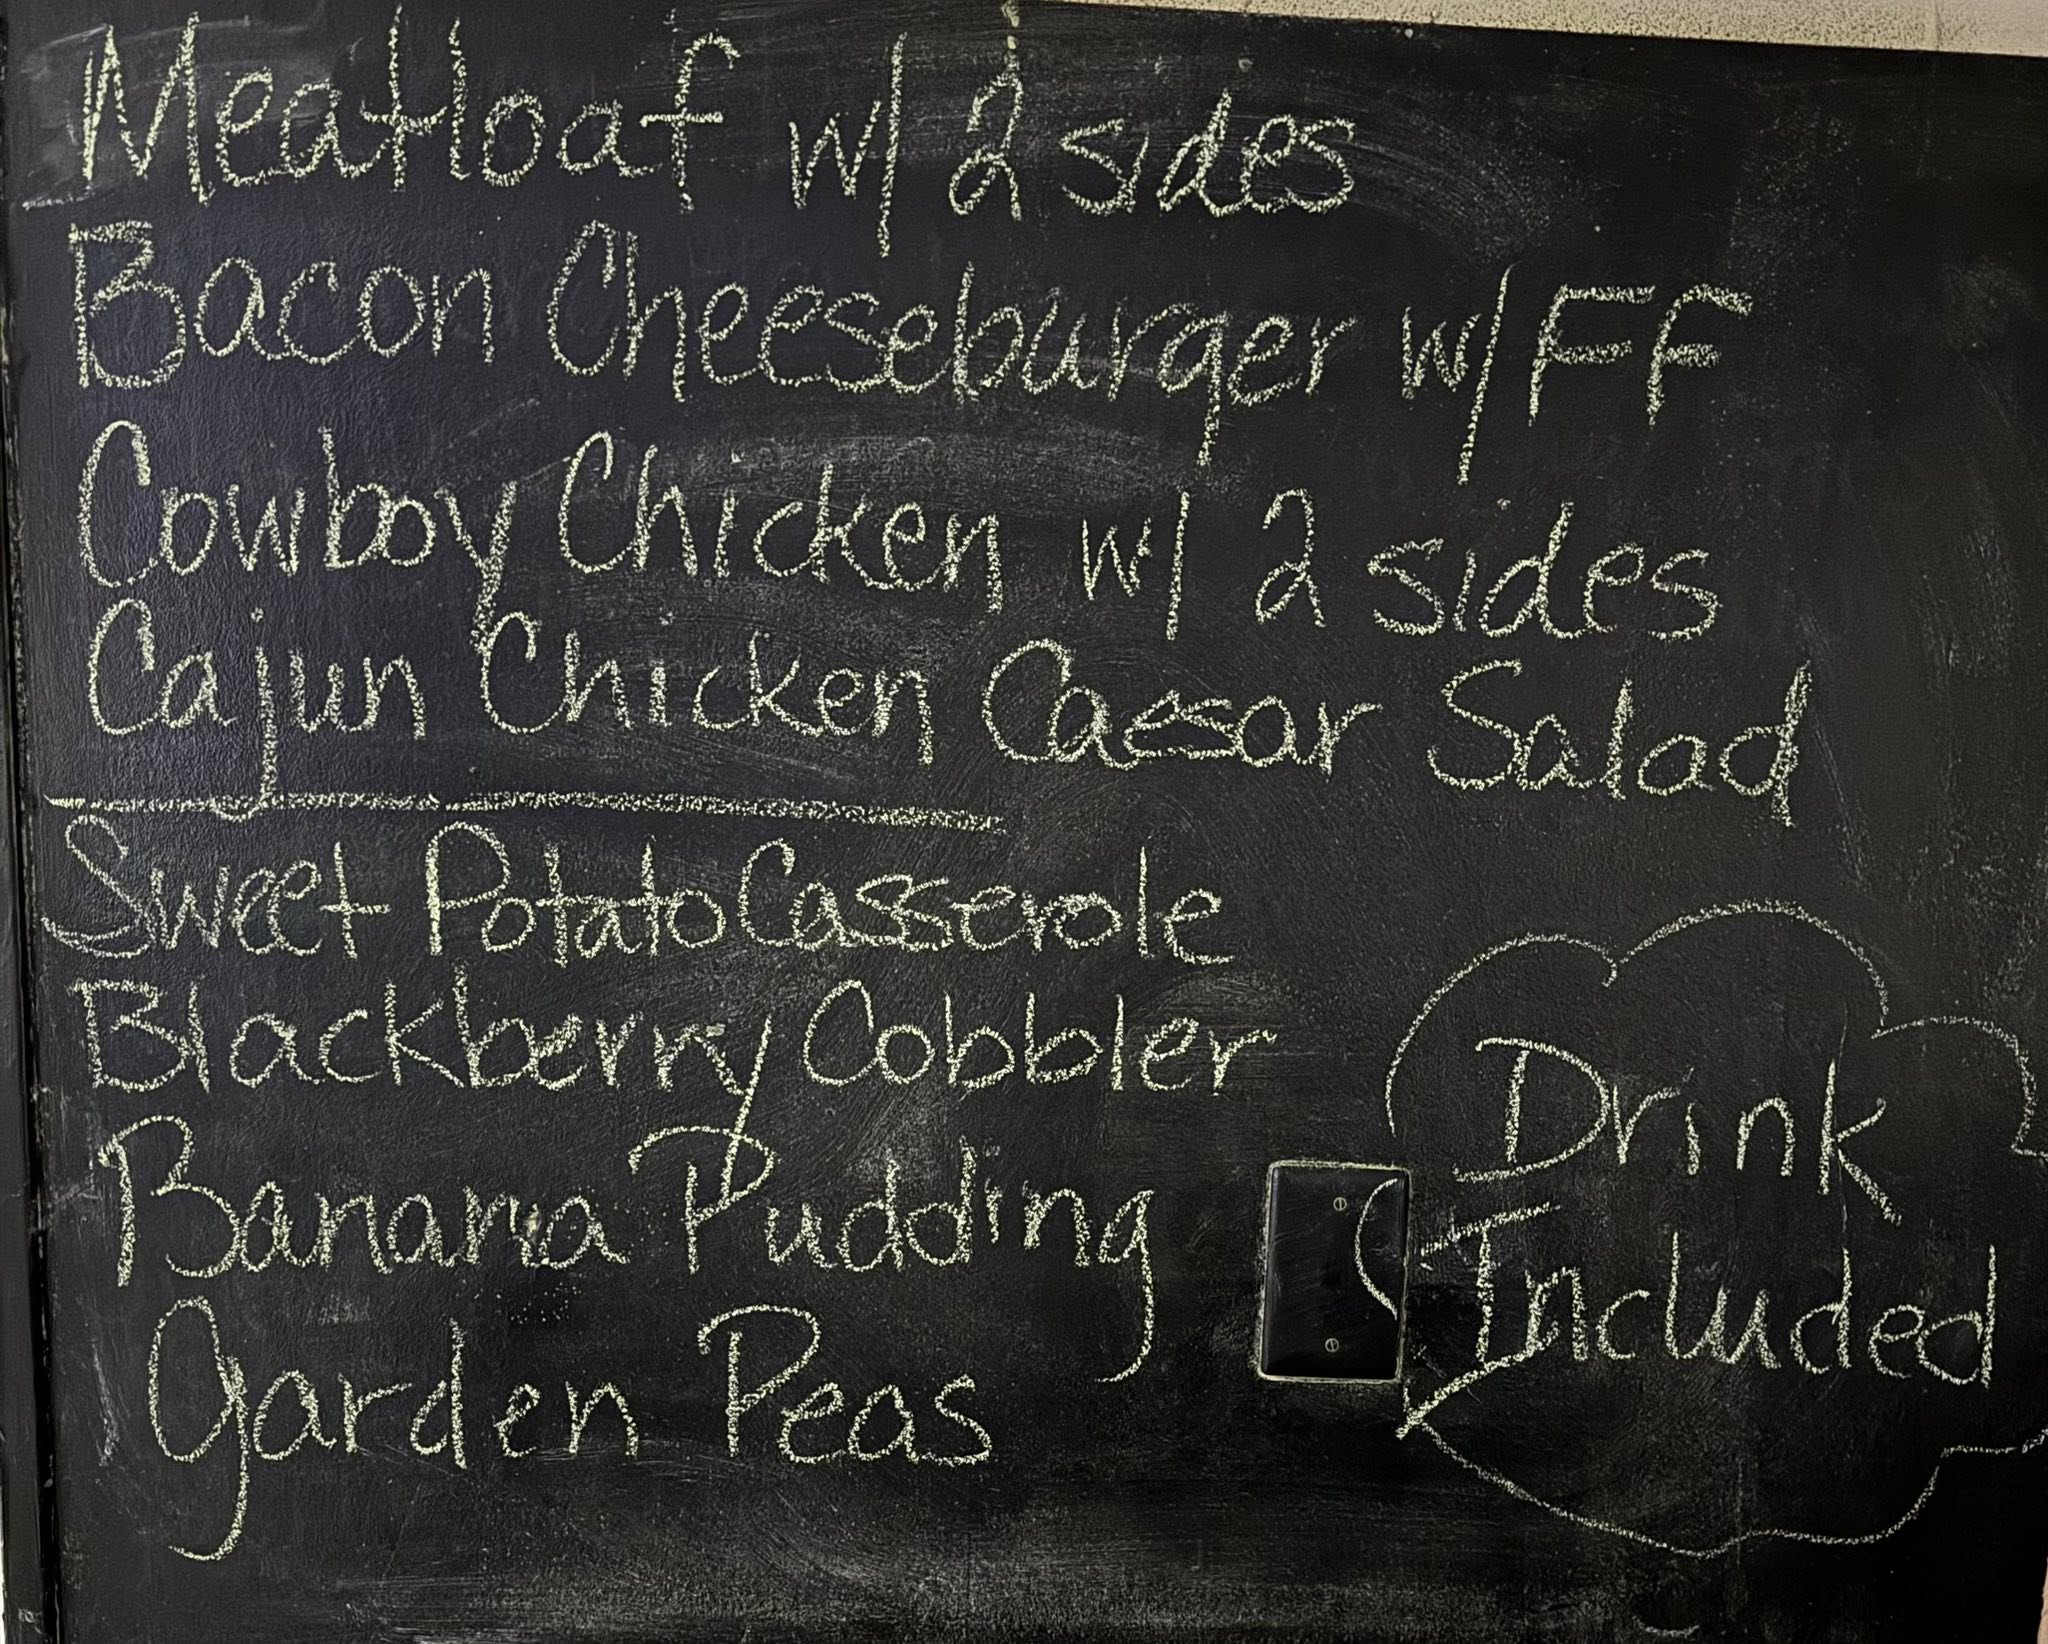 Meatloaf w/ 2 sides
Bacon Cheeseburger w/ FF
Cowboy Chicken w/ 2 sides
Cajun Chicken Caesar Salad
Sweet Potato Casserole
Blackberry Cobbler
Banana Pudding
Garden Peas
Drink
Included